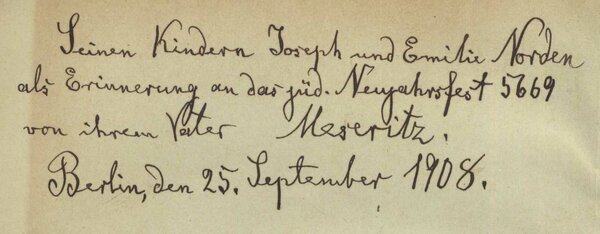 Seinen Kindern Joseph und Emilie Norden
als Erinnerung an das jüd. Neujahrsfest 5669
von ihrem Vater Meseritz.
Berlin, den 25. September 1908.